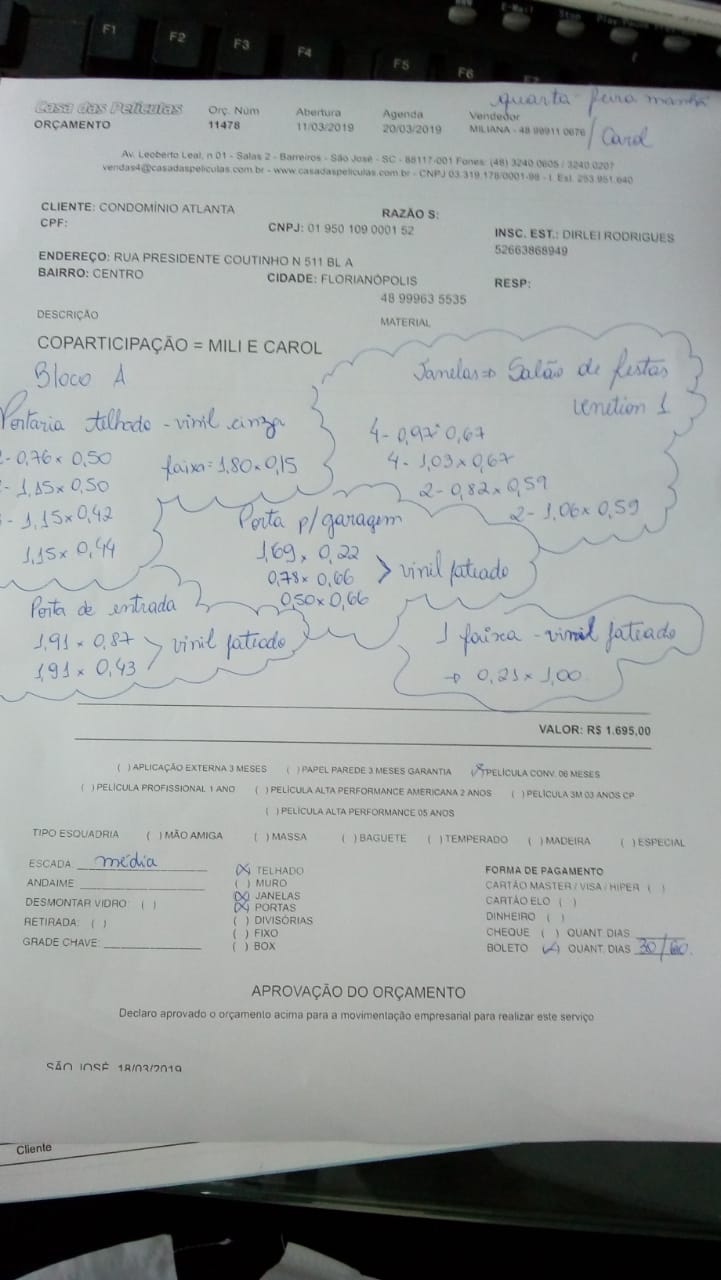 F1 F2 F3 F4 F5 F6
quarta-feira manhã
Casa das Películas Orç. Núm Abertura Agenda Vendedor
ORÇAMENTO 11478 11/03/2019 20/03/2019 MILIANA - 48 99911 0676 / Carol
Av. Leoberto Leal, n 01 - Salas 2 - Barreiros - São José - SC - 88117-001 Fones: (48) 3240 0605 / 3240 0207
vendas4@casadaspeliculas.com.br - www.casadaspeliculas.com.br - CNPJ 03.319.178/0001-98 - I. Est. 253.951.640
CLIENTE: CONDOMÍNIO ATLANTA RAZÃO S:
CPF: CNPJ: 01 950 109 0001 52 INSC. EST.: DIRLEI RODRIGUES
52663868949
ENDEREÇO: RUA PRESIDENTE COUTINHO N 511 BL A
BAIRRO: CENTRO CIDADE: FLORIANÓPOLIS RESP:
48 99963 5535
DESCRIÇÃO MATERIAL
COPARTICIPAÇÃO = MILI E CAROL
Bloco A
Janelas => Salão de festas
Venetion 1
4 - 0,97 x 0,67
4 - 1,03 x 0,67
2 - 0,82 x 0,59
2 - 1,06 x 0,59
Portaria telhado - vinil cinza
- 0,76 x 0,50 faixa = 1,80 x 0,15
- 1,15 x 0,50
- 1,15 x 0,42
1,15 x 0,44
Porta p/garagem
1,69 x 0,22
0,78 x 0,66 > vinil fateado
0,50 x 0,66
Porta de entrada
1,91 x 0,87 > vinil fateado
1,91 x 0,43
1 faixa - vinil fateado
→ 0,21 x 1,00
VALOR: R$ 1.695,00
( ) APLICAÇÃO EXTERNA 3 MESES ( ) PAPEL PAREDE 3 MESES GARANTIA (X) PELÍCULA CONV. 06 MESES
( ) PELÍCULA PROFISSIONAL 1 ANO ( ) PELÍCULA ALTA PERFORMANCE AMERICANA 2 ANOS ( ) PELÍCULA 3M 03 ANOS CP
( ) PELÍCULA ALTA PERFORMANCE 05 ANOS
TIPO ESQUADRIA ( ) MÃO AMIGA ( ) MASSA ( ) BAGUETE ( ) TEMPERADO ( ) MADEIRA ( ) ESPECIAL
ESCADA: média
ANDAIME
DESMONTAR VIDRO: ( )
RETIRADA: ( )
GRADE CHAVE:
(X) TELHADO
( ) MURO
(X) JANELAS
(X) PORTAS
( ) DIVISÓRIAS
( ) FIXO
( ) BOX
FORMA DE PAGAMENTO
CARTÃO MASTER / VISA / HIPER ( )
CARTÃO ELO ( )
DINHEIRO ( )
CHEQUE ( ) QUANT DIAS
BOLETO (✓) QUANT. DIAS 30/60.
APROVAÇÃO DO ORÇAMENTO
Declaro aprovado o orçamento acima para a movimentação empresarial para realizar este serviço
SÃO JOSÉ, 18/03/2019
Cliente